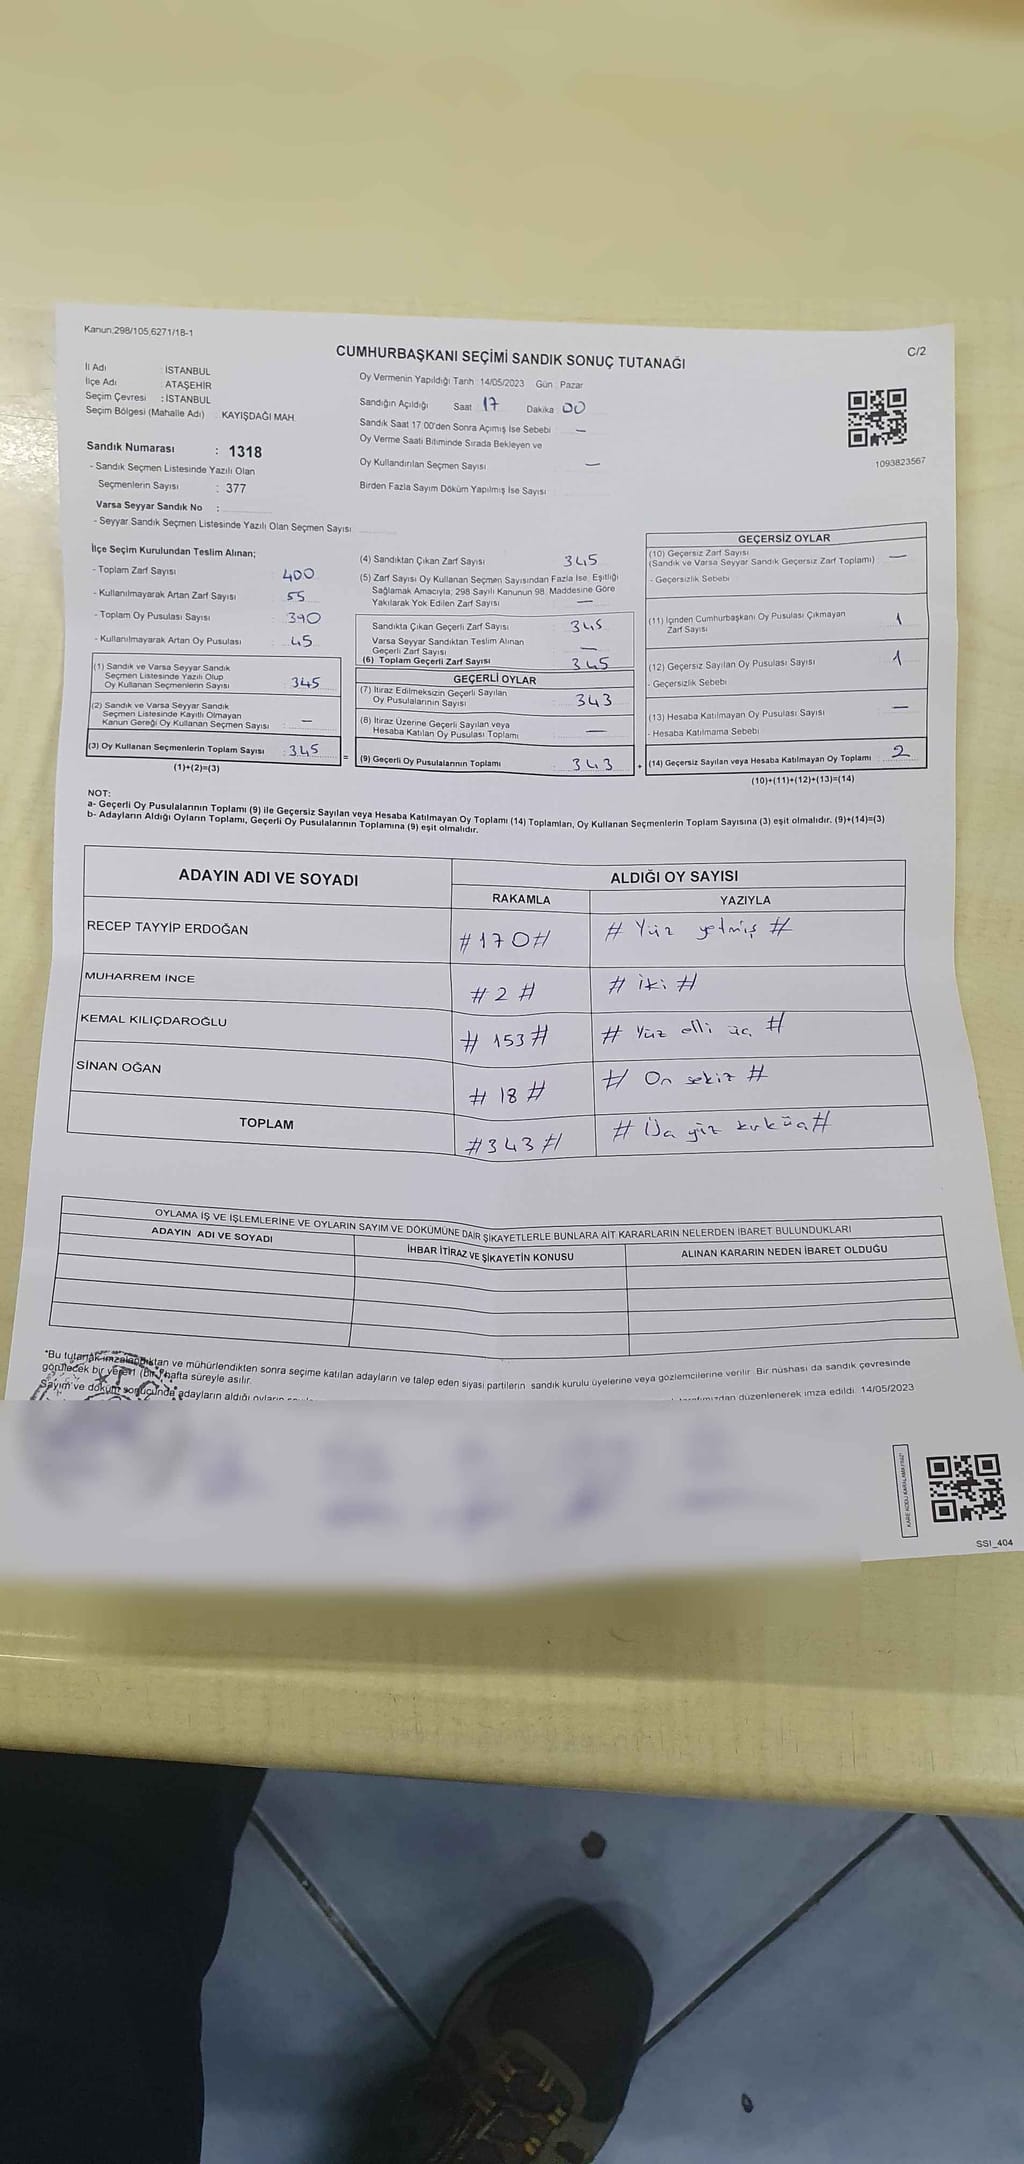 Kanun;298/105,6271/18-1
C/2
CUMHURBAŞKANI SEÇİMİ SANDIK SONUÇ TUTANAĞI
İl Adı : İSTANBUL
İlçe Adı : ATAŞEHİR
Seçim Çevresi : İSTANBUL
Seçim Bölgesi (Mahalle Adı) : KAYIŞDAĞI MAH.
Sandık Numarası : 1318
- Sandık Seçmen Listesinde Yazılı Olan
Seçmenlerin Sayısı : 377
Varsa Seyyar Sandık No :
- Seyyar Sandık Seçmen Listesinde Yazılı Olan Seçmen Sayısı
Oy Vermenin Yapıldığı Tarih : 14/05/2023 Gün : Pazar
Sandığın Açıldığı Saat 17 Dakika 00
Sandık Saat 17:00'den Sonra Açımış İse Sebebi —
Oy Verme Saati Bitiminde Sırada Bekleyen ve
Oy Kullandırılan Seçmen Sayısı —
Birden Fazla Sayım Döküm Yapılmış İse Sayısı
1093823567
İlçe Seçim Kurulundan Teslim Alınan;
- Toplam Zarf Sayısı 400
- Kullanılmayarak Artan Zarf Sayısı 55
- Toplam Oy Pusulası Sayısı : 390
- Kullanılmayarak Artan Oy Pusulası 45
(1) Sandık ve Varsa Seyyar Sandık
Seçmen Listesinde Yazılı Olup
Oy Kullanan Seçmenlerin Sayısı 345
(2) Sandık ve Varsa Seyyar Sandık
Seçmen Listesinde Kayıtlı Olmayan
Kanun Gereği Oy Kullanan Seçmen Sayısı : —
(3) Oy Kullanan Seçmenlerin Toplam Sayısı : 345
(1)+(2)=(3)
=
(4) Sandıktan Çıkan Zarf Sayısı 345
(5) Zarf Sayısı Oy Kullanan Seçmen Sayısından Fazla İse, Eşitliği
Sağlamak Amacıyla, 298 Sayılı Kanunun 98. Maddesine Göre
Yakılarak Yok Edilen Zarf Sayısı —
Sandıkta Çıkan Geçerli Zarf Sayısı : 345
Varsa Seyyar Sandıktan Teslim Alınan
Geçerli Zarf Sayısı —
(6) Toplam Geçerli Zarf Sayısı 345
GEÇERLİ OYLAR
(7) İtiraz Edilmeksizin Geçerli Sayılan
Oy Pusulalarının Sayısı 343
(8) İtiraz Üzerine Geçerli Sayılan veya
Hesaba Katılan Oy Pusulası Toplamı —
(9) Geçerli Oy Pusulalarının Toplamı 343
+
GEÇERSİZ OYLAR
(10) Geçersiz Zarf Sayısı
(Sandık ve Varsa Seyyar Sandık Geçersiz Zarf Toplamı) —
- Geçersizlik Sebebi
(11) İçinden Cumhurbaşkanı Oy Pusulası Çıkmayan
Zarf Sayısı 1
(12) Geçersiz Sayılan Oy Pusulası Sayısı 1
- Geçersizlik Sebebi
(13) Hesaba Katılmayan Oy Pusulası Sayısı —
- Hesaba Katılmama Sebebi
(14) Geçersiz Sayılan veya Hesaba Katılmayan Oy Toplamı 2
(10)+(11)+(12)+(13)=(14)
NOT:
a- Geçerli Oy Pusulalarının Toplamı (9) ile Geçersiz Sayılan veya Hesaba Katılmayan Oy Toplamı (14) Toplamları, Oy Kullanan Seçmenlerin Toplam Sayısına (3) eşit olmalıdır. (9)+(14)=(3)
b- Adayların Aldığı Oyların Toplamı, Geçerli Oy Pusulalarının Toplamına (9) eşit olmalıdır.
ADAYIN ADI VE SOYADI
ALDIĞI OY SAYISI
RAKAMLA YAZIYLA
RECEP TAYYİP ERDOĞAN #170# # Yüz yetmiş #
MUHARREM İNCE #2# # iki #
KEMAL KILIÇDAROĞLU # 153# # Yüz elli üç #
SİNAN OĞAN # 18 # # On sekiz #
TOPLAM #343# # Üç yüz kırküç#
OYLAMA İŞ VE İŞLEMLERİNE VE OYLARIN SAYIM VE DÖKÜMÜNE DAİR ŞİKAYETLERLE BUNLARA AİT KARARLARIN NELERDEN İBARET BULUNDUKLARI
ADAYIN ADI VE SOYADI İHBAR İTİRAZ VE ŞİKAYETİN KONUSU ALINAN KARARIN NEDEN İBARET OLDUĞU
*Bu tutanak imzalandıktan ve mühürlendikten sonra seçime katılan adayların ve talep eden siyasi partilerin sandık kurulu üyelerine veya gözlemcilerine verilir. Bir nüshası da sandık çevresinde
görülecek bir yere (bir) hafta süreyle asılır.
Sayım ve döküm sonucunda adayların aldığı oyların
düzenlenerek imza edildi. 14/05/2023
T.C.
KARE KODU KARALAMAYINIZ!
SSI_404